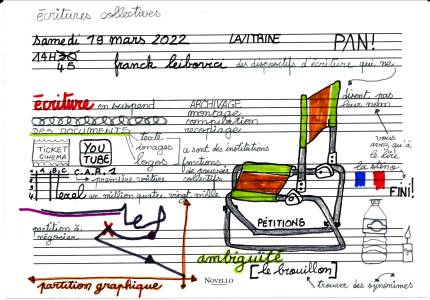 écritures collectives
samedi 19 mars 2022 LA VITRINE PAN!
14H30
45 franck leibovici des dispositifs d'écriture qui ne
disent pas
leur nom
écriture en suspend ARCHIVAGE
montage
compilation
recopiage
DES DOCUMENTS texte
images
logos
TICKET
CINEMA
YOU
TUBE
vous
avez qu'à
le lire
sont des institutions
fonctions
collectifs
A B C C.A.R.1
première voiture
un million quatre vingt mille
FINI!
PÉTITIONS
partition à
négocier
ambiguïté
[le brouillon]
trouver des synonymes
partition graphique
NOVELLO